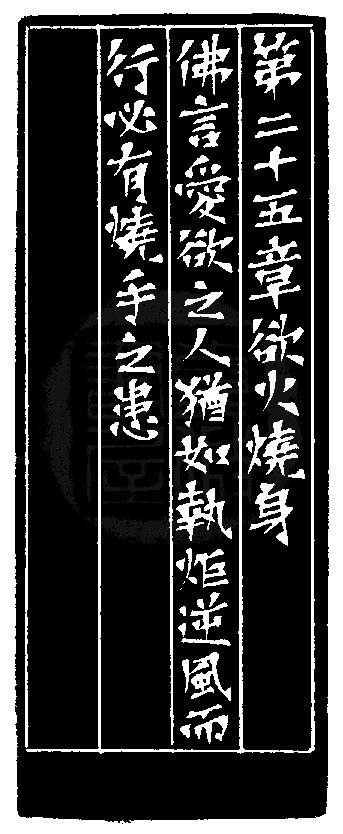 第二十五章欲火燒身
佛言愛欲之人猶如執炬逆風而
行必有燒手之患